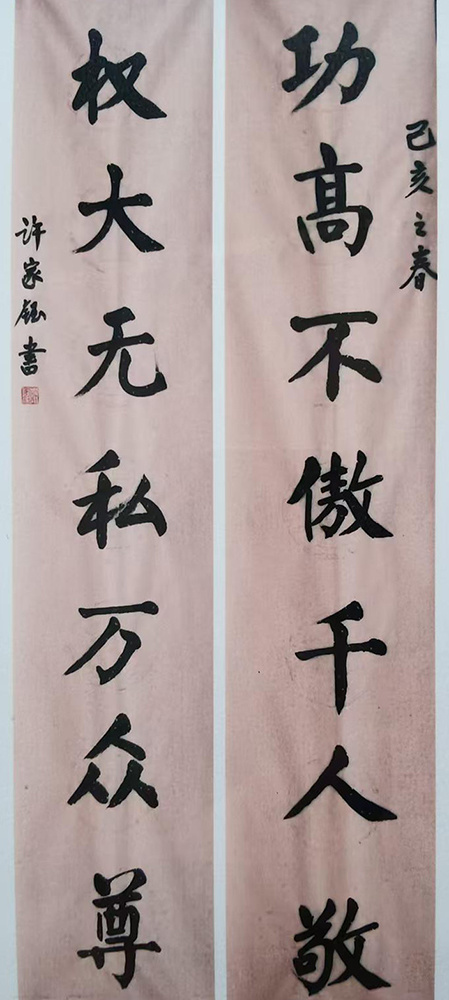 己亥之春
功高不傲千人敬
权大无私万众尊
许家钰书